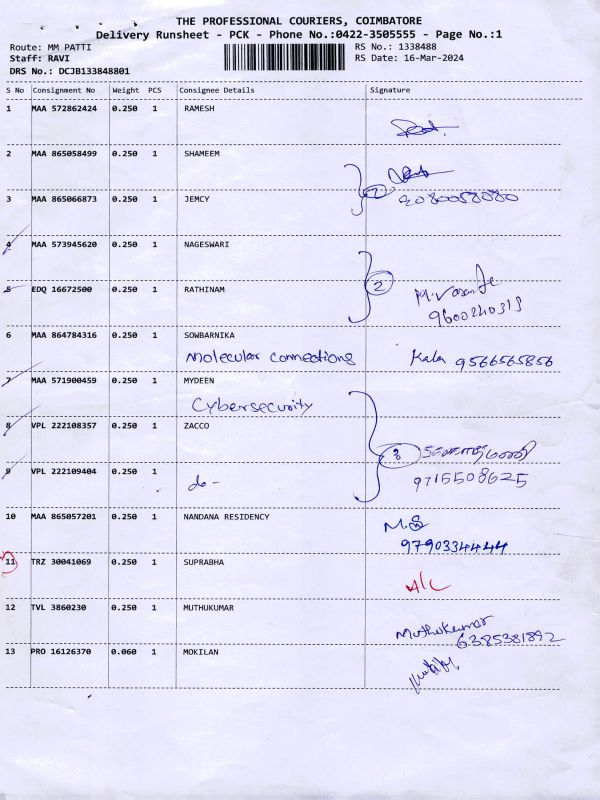 THE PROFESSIONAL COURIERS, COIMBATORE
Delivery Runsheet - PCK - Phone No.:0422-3505555 - Page No.:1
Route: MM PATTI
RS No.: 1338488
Staff: RAVI
RS Date: 16-Mar-2024
DRS No.: DCJB133848801
S No Consignment No Weight PCS Consignee Details Signature
1 MAA 572862424 0.250 1 RAMESH
2 MAA 865058499 0.250 1 SHAMEEM
2
3 MAA 865066873 0.250 1 JEMCY 9080058080
4 MAA 573945620 0.250 1 NAGESWARI
2
5 EDQ 16672500 0.250 1 RATHINAM
9600240313
6 MAA 864784316 0.250 1 SOWBARNIKA
Molecular connections Kala 9566565856
7 MAA 571900459 0.250 1 MYDEEN
Cybersecurity
8 VPL 222108357 0.250 1 ZACCO
3
9 VPL 222109404 0.250 1
-do- 9715508625
10 MAA 865057201 0.250 1 NANDANA RESIDENCY
9790334444
11 TRZ 30041069 0.250 1 SUPRABHA
A/C
12 TVL 3860230 0.250 1 MUTHUKUMAR
Muthukumar
6385381892
13 PRO 16126370 0.060 1 MOKILAN